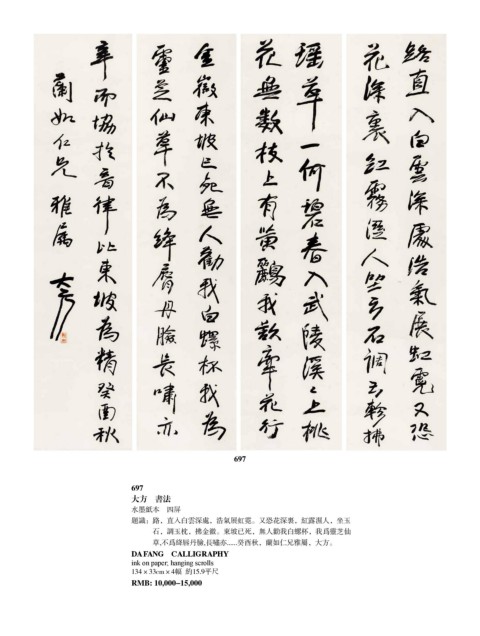 路直入白雲深處浩氣展虹霓又恐
花深裏紅霧溼人坐玉石調玉軫拂
瑶草一何碧春入武陵溪〻上桃
花無數枝上有黃鸝我欲穿花行
金徽東坡已死無人勸我白螺杯我為
靈芝仙草不為絳脣丹臉長嘯亦
辛而協於音律比東坡為精癸酉秋
蘭如仁兄雅屬 大方
697
697
大方 書法
水墨紙本 四屏
題識：路，直入白雲深處，浩氣展虹霓。又恐花深裏，紅露濕人，坐玉
石，調玉枕，拂金徽。東坡已死，無人勸我白螺杯，我爲靈芝仙
草,不爲絳唇丹臉,長嘯亦......癸酉秋，蘭如仁兄雅屬，大方。
DA FANG CALLIGRAPHY
ink on paper; hanging scrolls
134 × 33cm × 4幅 約15.9平尺
RMB: 10,000–15,000